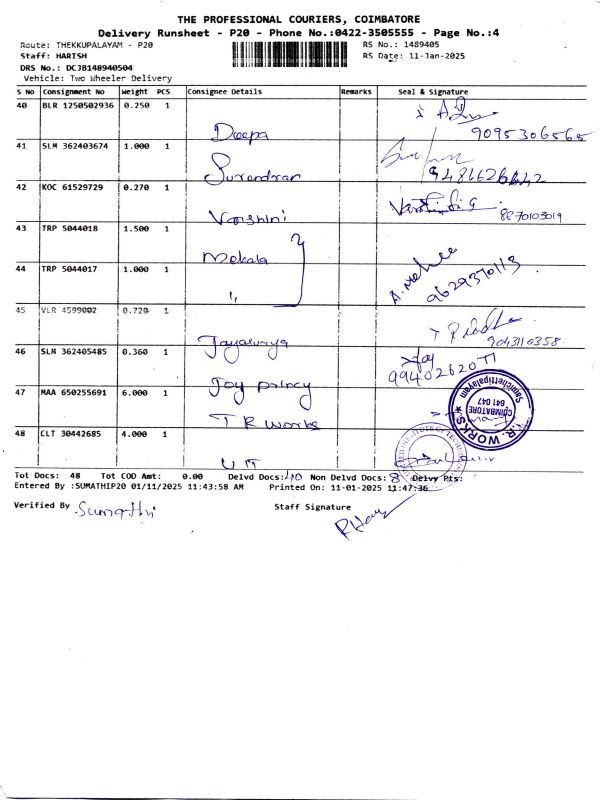 THE PROFESSIONAL COURIERS, COIMBATORE
Delivery Runsheet - P20 - Phone No.:0422-3505555 - Page No.:4
Route: THEKKUPALAYAM - P20 RS No.: 1489405
Staff: HARISH RS Date: 11-Jan-2025
DRS No.: DCJB148940504
Vehicle: Two Wheeler Delivery
S No Consignment No Weight PCS Consignee Details Remarks Seal & Signature
40 BLR 1250502936 0.250 1
Deepa 9095306565
41 SLM 362403674 1.000 1
Surendran 9481626442
42 KOC 61529729 0.270 1
Varshini 8870103019
43 TRP 5044018 1.500 1
Mekala
44 TRP 5044017 1.000 1
" 9629370113
45 VLR 4599002 0.720 1
Jayasurya 9043110358
46 SLM 362405485 0.360 1
Joy princy 9940262077
47 MAA 650255691 6.000 1
T R Works
T.R. WORKS
Samichettipalayam
COIMBATORE
641 047
48 CLT 30442685 4.000 1
Tot Docs: 48 Tot COD Amt: 0.00 Delvd Docs: 40 Non Delvd Docs: 8 Delvy Pts:
Entered By :SUMATHIP20 01/11/2025 11:43:58 AM Printed On: 11-01-2025 11:47:36
Verified By Sumathi Staff Signature